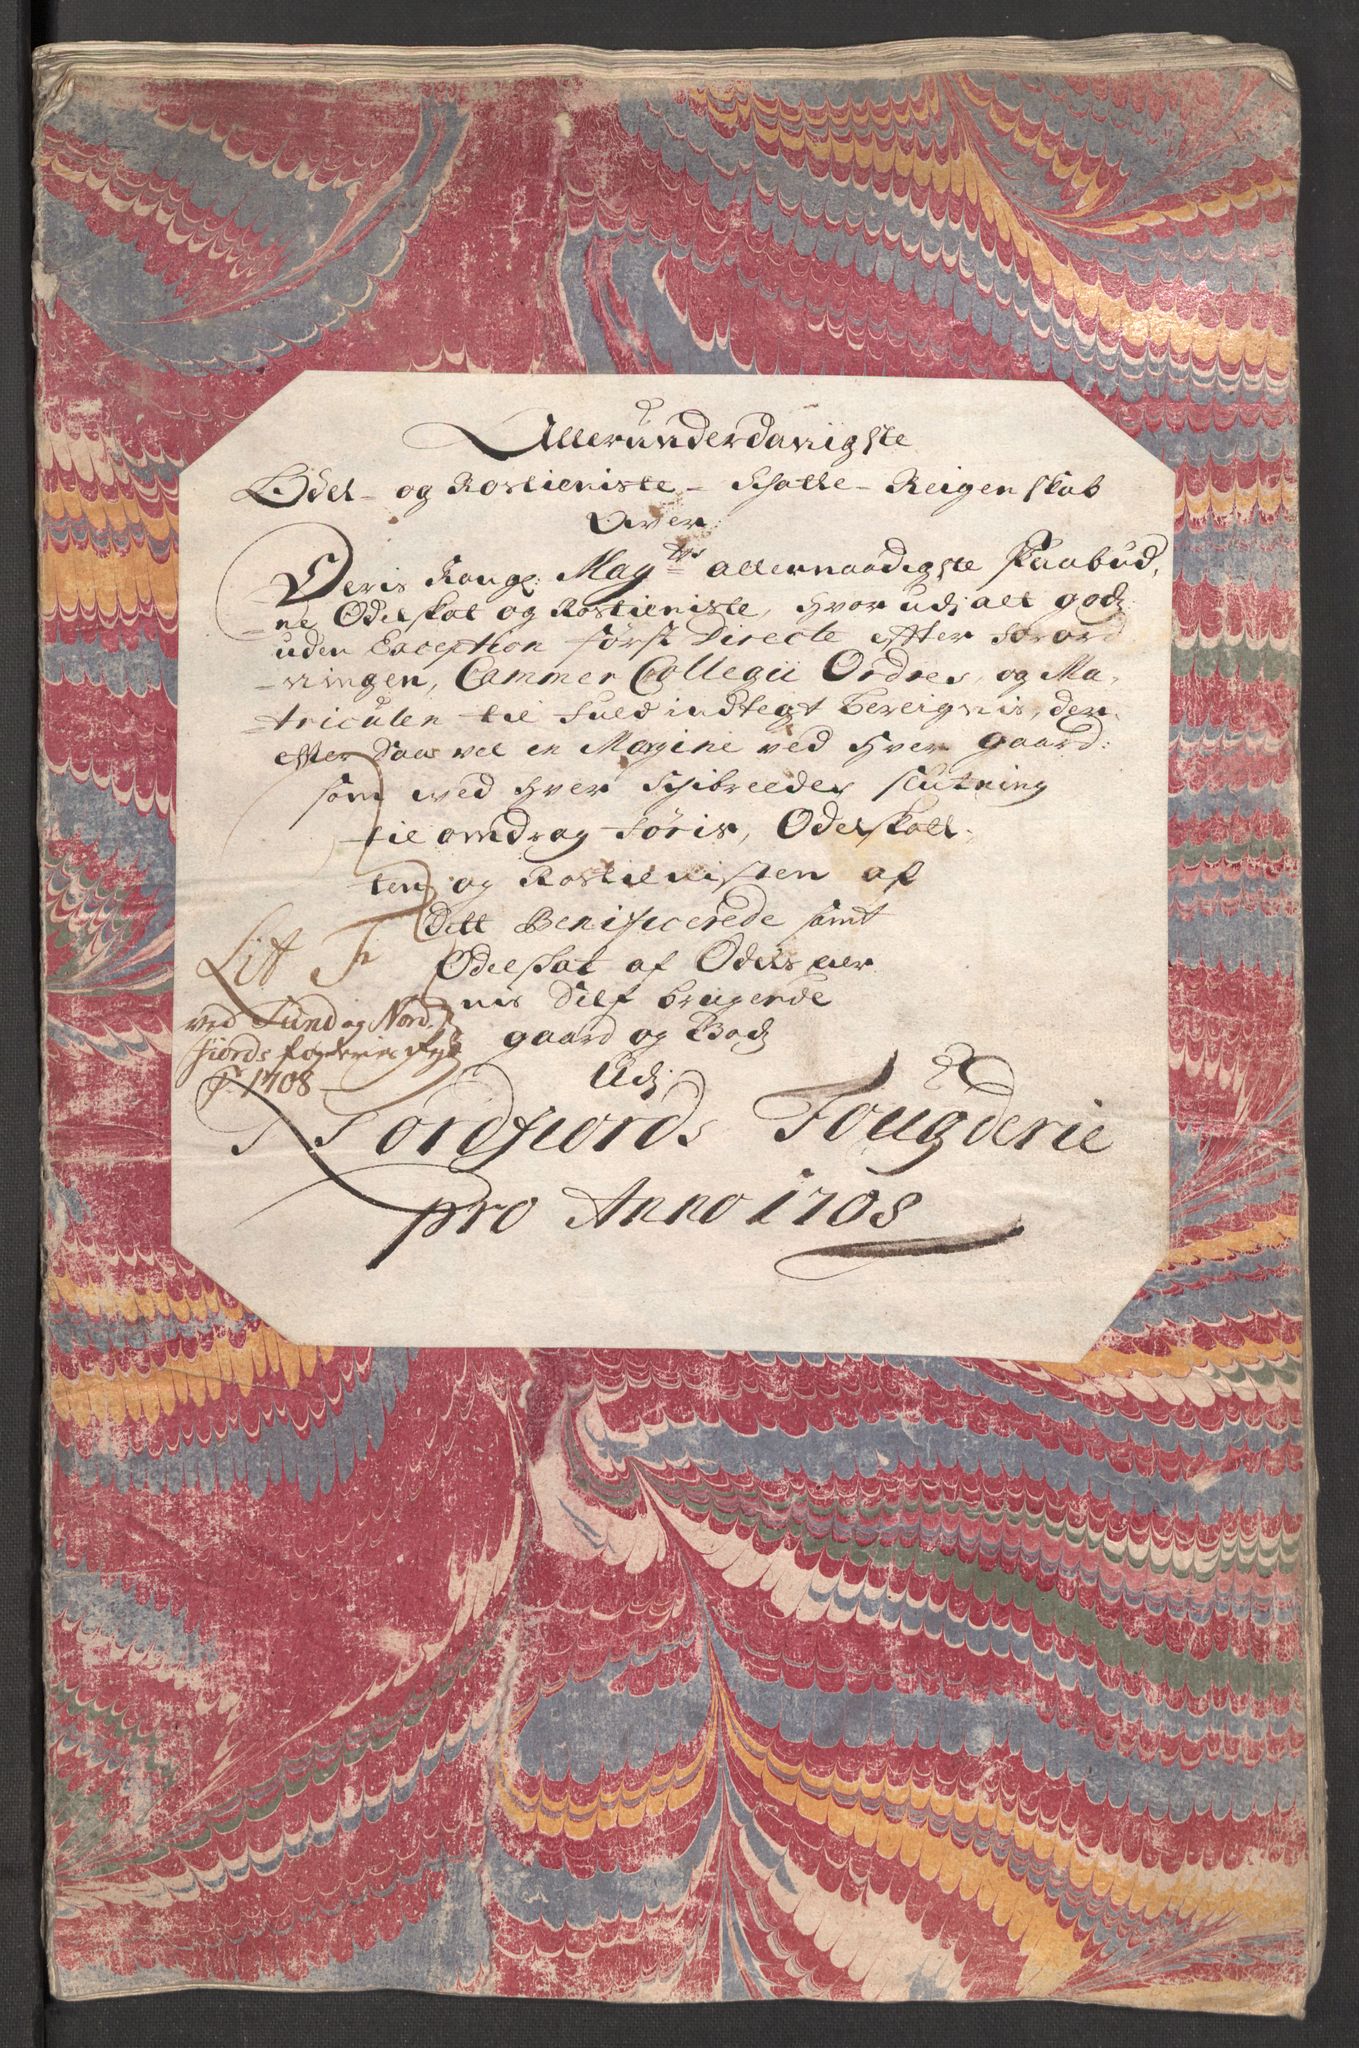 Allerunderdanigste
Odel- og Rostieniste- Schatte- Reigenskab
Over
Deris Kongl: Mayts allernaadigste Paabud,
ne Odelskat og Rostieniste, hvor udj alt godz
uden Exception først Directe efter forord
ningen, Cammer Collegii Ordres, og Ma,
triculen til fuld indtegt bereignis, der
efter Saa vel in Margine ved hver gaard:
som ved hver Schibreedes slutning
til omdrag føris, Odelskatt,
ten og Rostienisten af
Dett Benificerede samt
Odelskat af Odels eier
nis Self brugende
gaard og Godz
Udj
Nordfiords Fougderie
pro Anno 1708
Litt F
ved Sund og Nord
fiords fogderies
1708